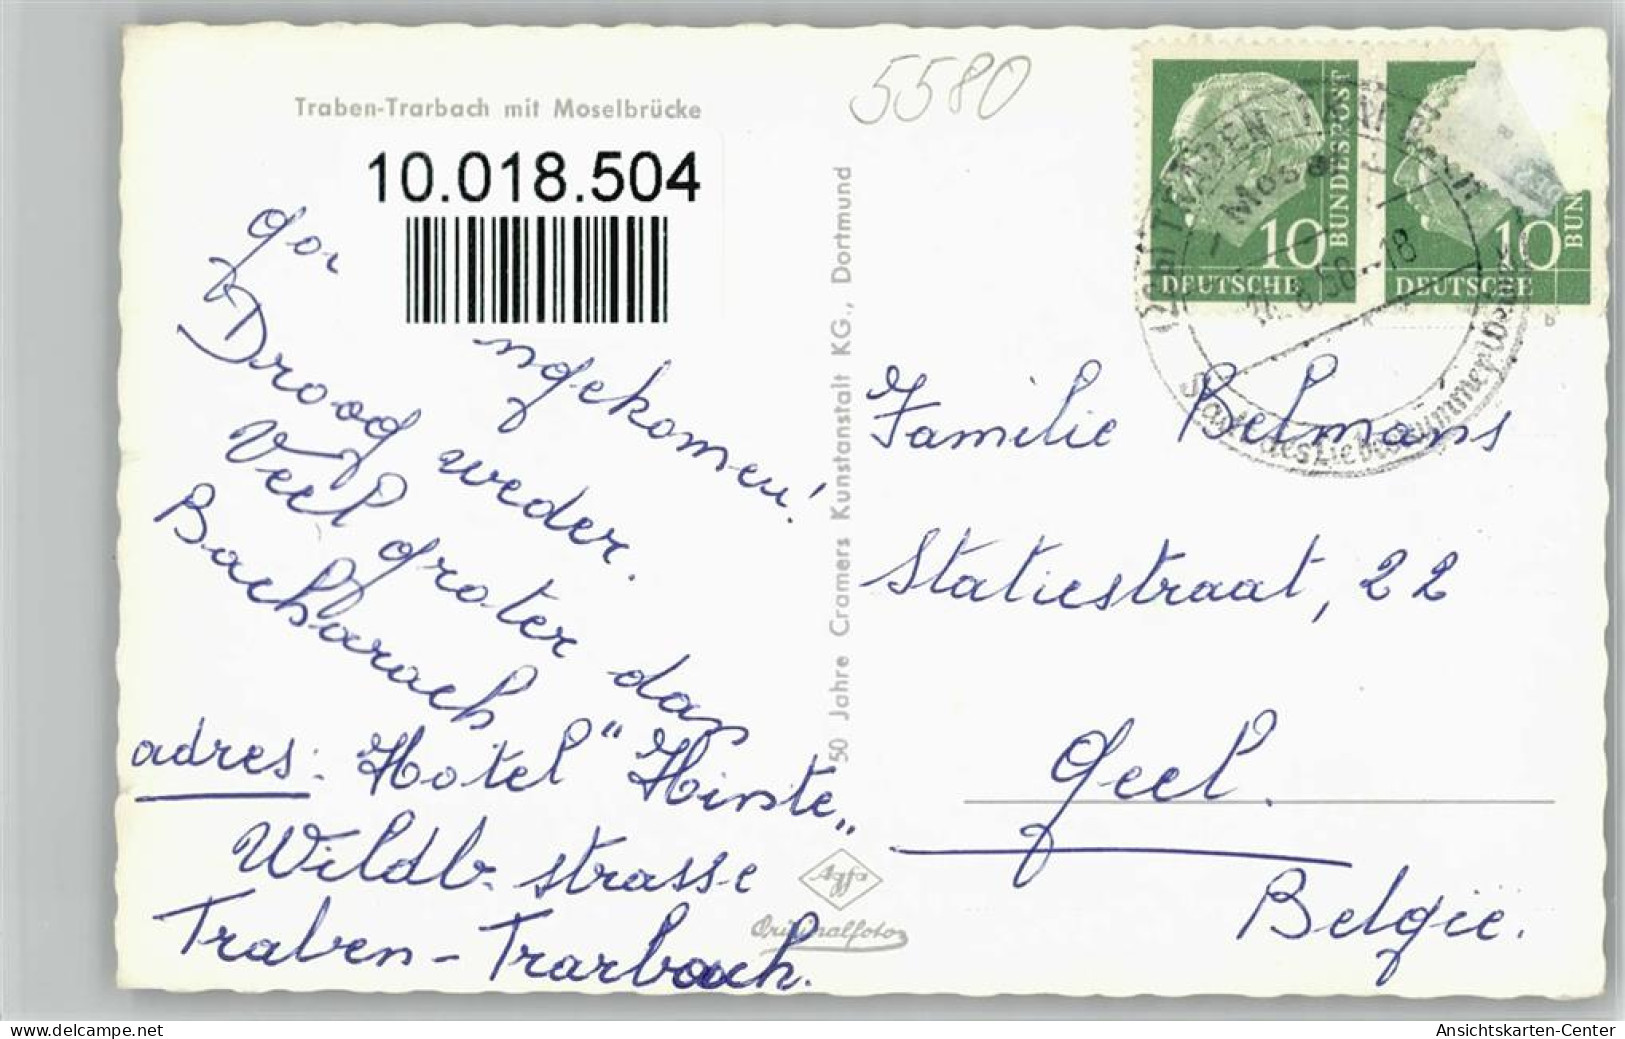 Traben-Trarbach mit Moselbrücke
10.018.504
5580
ngekomen!
Droog weder.
Veel groter dan
Bacharach
adres: Hotel "Hirste"
Wildb. strasse
Traben-Trarbach.
50 Jahre Cramers Kunstanstalt KG., Dortmund
Agfa
Originalfoto
10
BUNDESPOST
DEUTSCHE
10
BUN
DEUTSCHE
Mosel
-18
Familie Belmans
Statiestraat, 22
Geel.
Belgie.
Ansichtskarten-Center